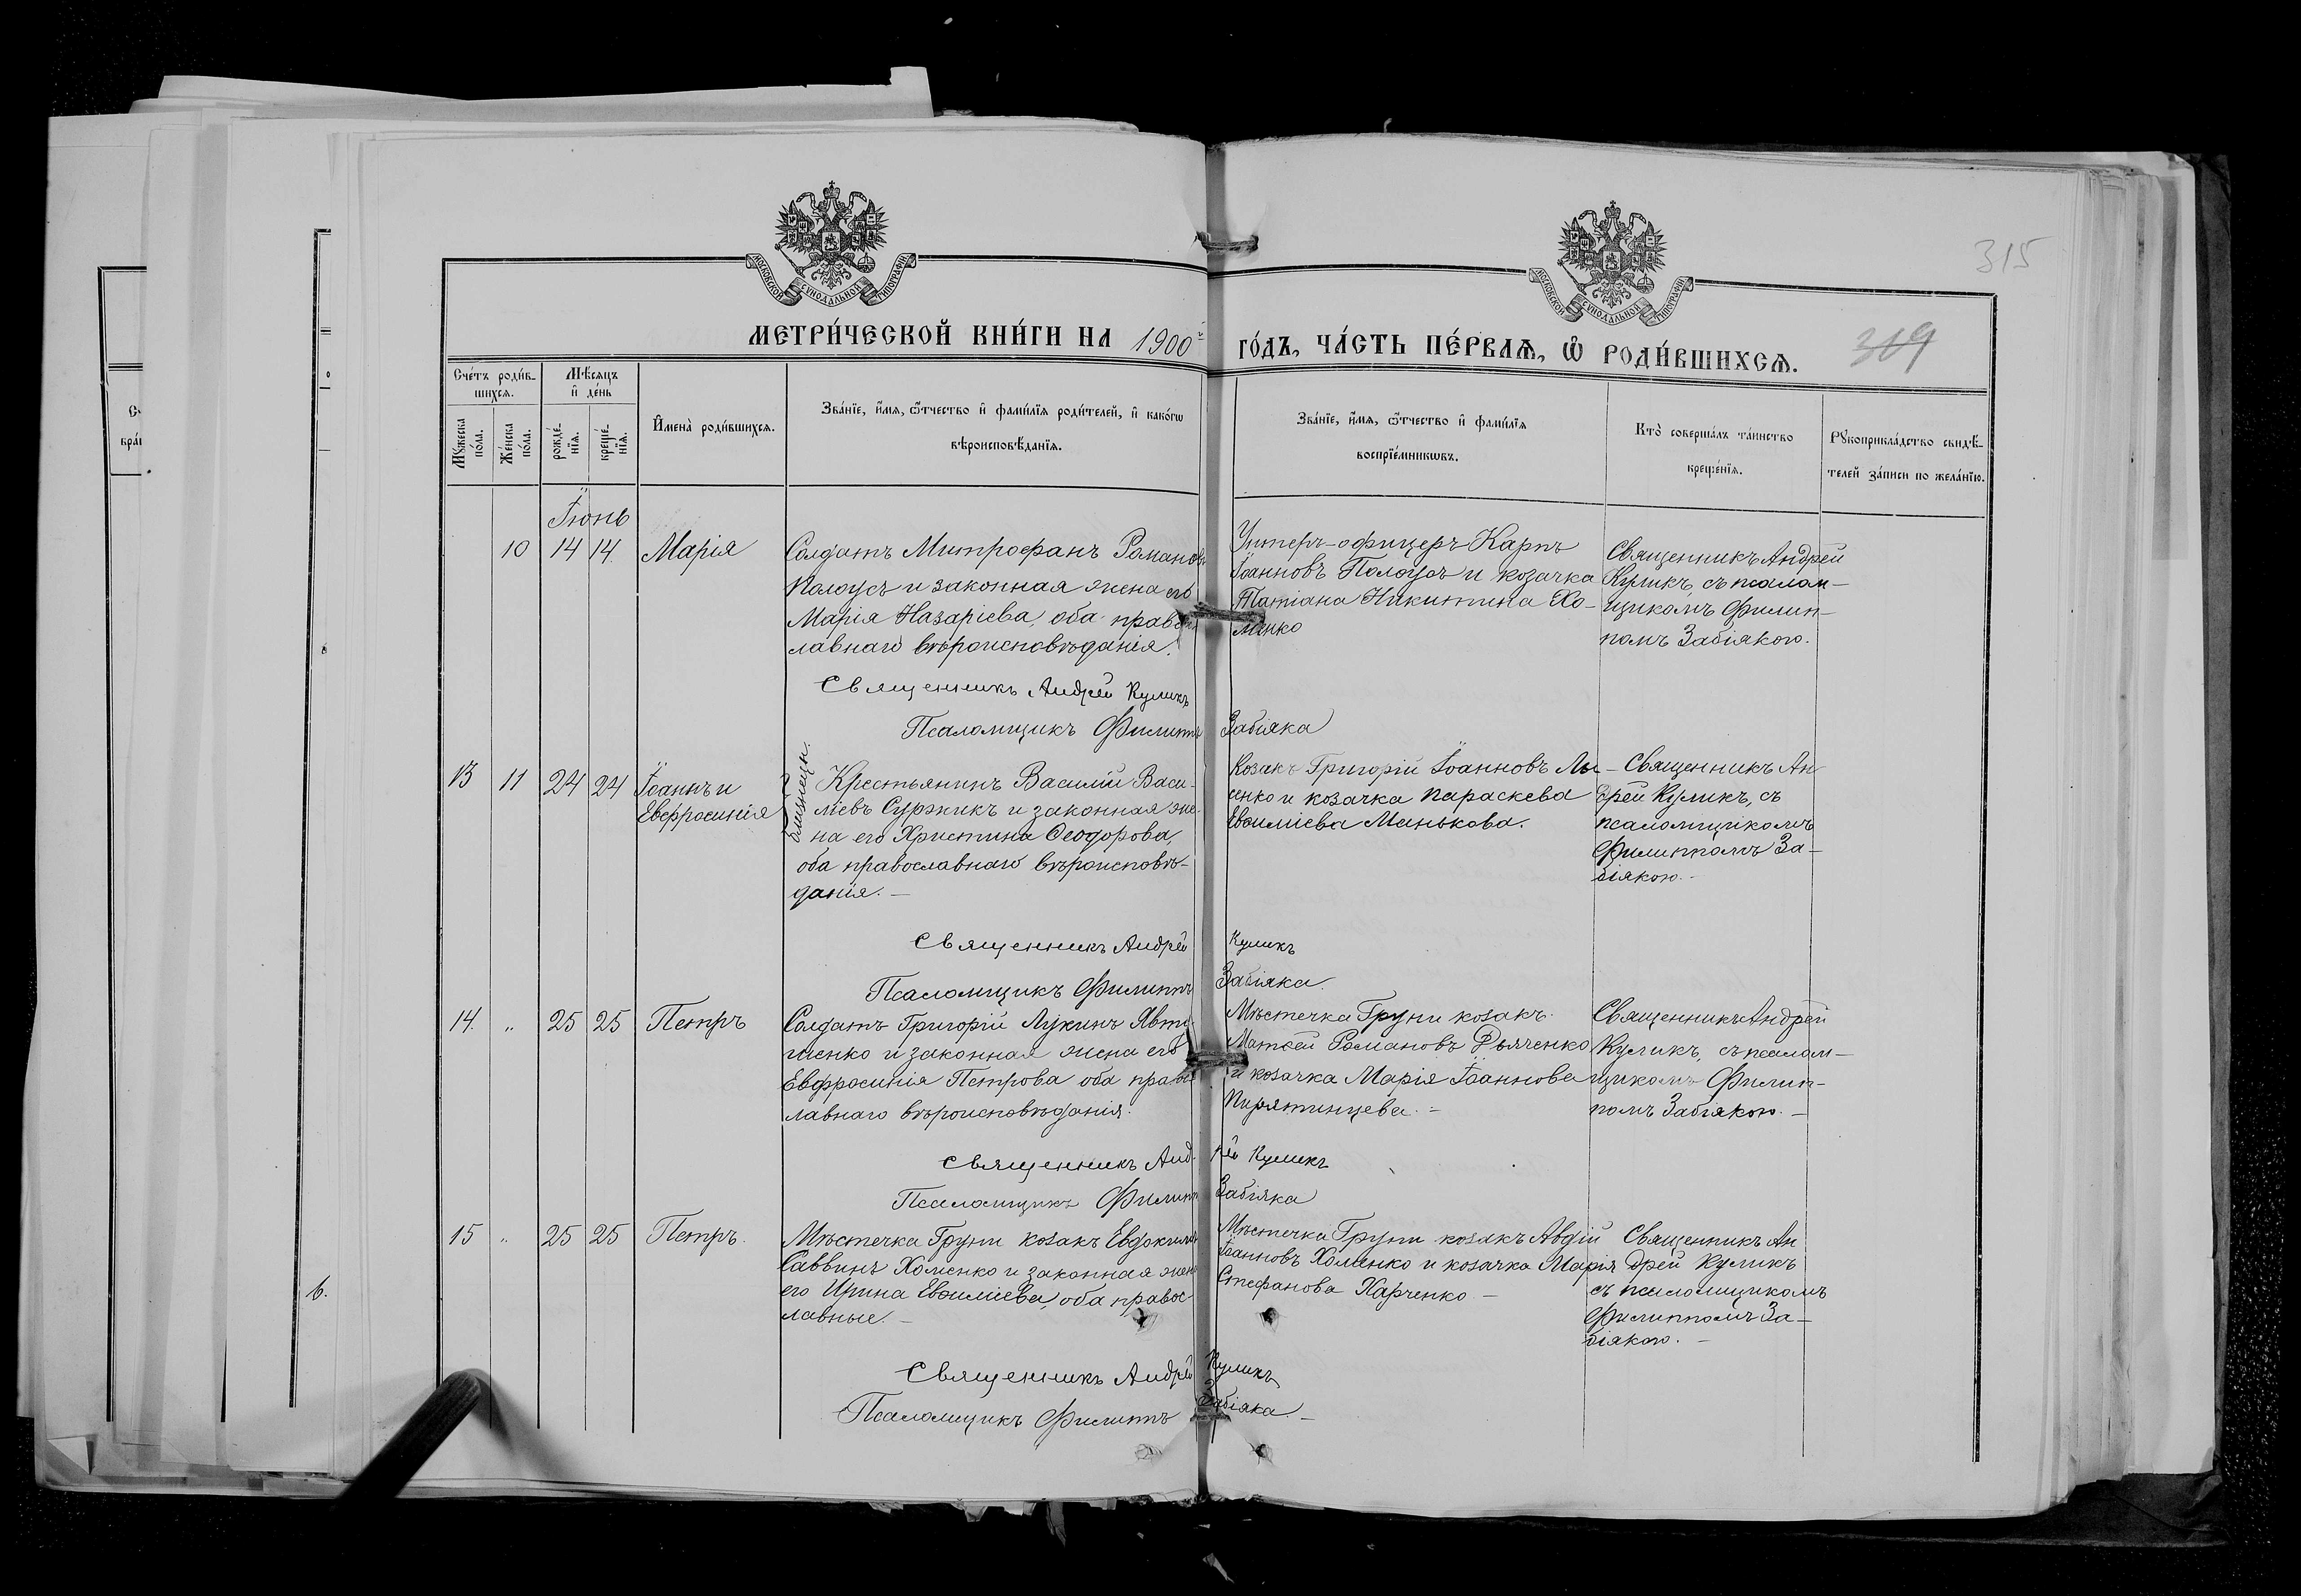 315
МОСКОВСКОЙ СУНОДАЛЬНОЙ ТИПОГРАФІИ
МОСКОВСКОЙ СУНОДАЛЬНОЙ ТИПОГРАФІИ
МЕТРИ́ЧЕСКОЙ КНИ́ГИ НА 1900й
ГО́ДЪ, ЧА́СТЬ ПЕ́РВАѦ, Ѡ҆ РОДИ́ВШИХСѦ.
309
Сче́тъ роди́в-
шихсѧ.
Мꙋ́жеска по́ла.
Же́нска по́ла.
Мѣ́сѧцъ
и҆ де́нь
рожде́-
нїѧ.
креще́-
нїѧ.
И҆мена̀ роди́вшихсѧ.
Зва́нїе, и҆́мѧ, ѻ҆́тчество и҆ фами́лїѧ роди́телей, и҆ како́гѡ
вѣроисповѣ́данїѧ.
Зва́нїе, и҆́мѧ, ѻ҆́тчество и҆ фами́лїѧ
воспрїе́мникѡвъ.
Кто̀ соверша́лъ та́инство
креще́нїѧ.
Рꙋкоприкла́дство свидѣ́-
телей за́писи по жела́нїю.
Іюнь
10 14 14 Марія
Солдатъ Митрофанъ Романовъ
Полоусъ и законная жена его
Марія Назаріева, оба право
лавнаго вѣроисповѣданія.
Унтеръ-офицеръ Карпъ
Іоанновъ Полоусъ и козачка
Татіана Никитина Хо-
менко
Священникъ Андрей
Куликъ, съ псалом-
щикомъ Филип-
помъ Забіякою.
Священникъ Андрей Куликъ
Псаломщикъ Филиппъ Забіяка
13 11 24 24 Іоаннъ и
Евфросинія
близнецы.
Крестьянинъ Василій Васи-
ліевъ Суржикъ и законная же-
на его Христина Ѳеодорова,
оба православнаго вѣроисповѣ-
данія. —
Козакъ Григорій Іоанновъ Лы-
сенко и козачка Параскева
Евѳиміева Манькова.
Священникъ Ан-
дрей Куликъ, съ
псаломщикомъ
Филиппомъ За-
біякою. -
Священникъ Андрей Куликъ
Псаломщикъ Филиппъ Забіяка.
14. " 25 25 Петръ
Солдатъ Григорій Лукинъ Явту
шенко и законная жена его
Евфросинія Петрова оба правос
лавнаго вѣроисповѣданія.
Мѣстечка Груни козакъ
Матѳей Романовъ Дьяченко
и козачка Марія Іоаннова
Пирятинцева. =
Священникъ Андрей
Куликъ, съ псалом-
щикомъ Филип-
помъ Забіякою. —
Священникъ Андрей Куликъ
Псаломщикъ Филиппъ Забіяка
15 " 25 25 Петръ.
Мѣстечка Груни козакъ Евдокимъ
Саввинъ Хоменко и законная жена
его Ирина Евѳиміева, оба правос
лавные. —
Мѣстечка Груни козакъ Авдій
Іоанновъ Хоменко и козачка Марія
Стефанова Харченко —
Священникъ Ан
дрей Куликъ
съ псаломщикомъ
Филиппомъ За-
біякою. —
Священникъ Андрей Куликъ
Псаломщикъ Филиппъ Забіяка. —